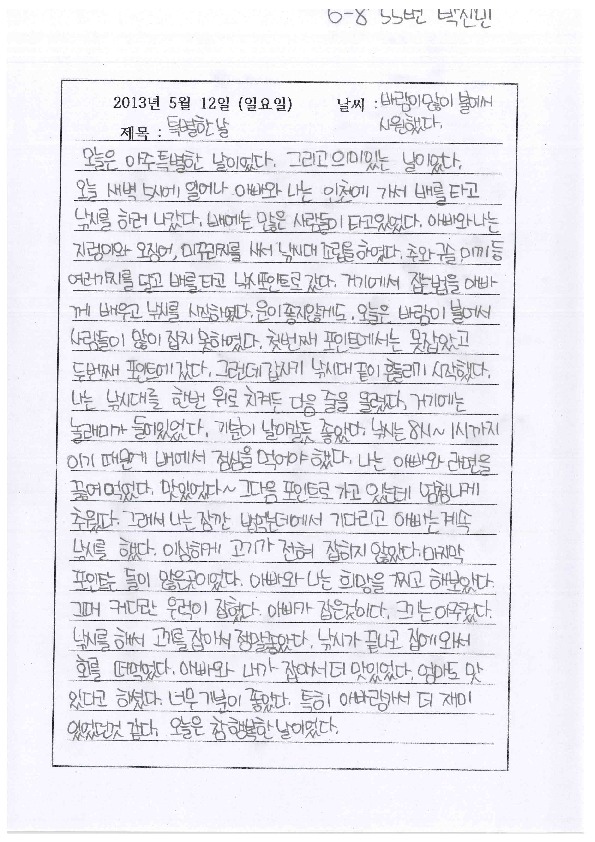 6-8 35번 박진빈
2013년 5월 12일 (일요일) 날씨 : 바람이 많이 불어서
시원했다.
제목 : 특별한 날
오늘은 아주 특별한 날이었다. 그리고 의미있는 날이었다.
오늘 새벽 5시에 일어나 아빠와 나는 인천에 가서 배를 타고
낚시를 하러 나갔다. 배에는 많은 사람들이 타고있었다. 아빠와 나는
지렁이와 오징어, 미꾸라지를 사서 낚시대 조립을 하였다. 추와 구슬 미끼 등
여러가지를 달고 배를 타고 낚시 포인트로 갔다. 거기에서 잡는법을 아빠
께 배우고 낚시를 시작하였다. 운이 좋지않게도, 오늘은 바람이 불어서
사람들이 많이 잡지 못하였다. 첫번째 포인트에서는 못잡았고
두번째 포인트에 갔다. 그런데 갑자기 낚시대 끝이 흔들리기 시작했다.
나는 낚시대를 한번 위로 치켜든 다음 줄을 올렸다. 거기에는
놀래미가 들어있었다. 기분이 날아갈듯 좋았다. 낚시는 8시~1시까지
이기 때문에 배에서 점심을 먹어야 했다. 나는 아빠와 라면을
끓여 먹었다. 맛있었다~ 그다음 포인트로 가고 있는데 엄청나게
추웠다. 그래서 나는 잠깐 에서 기다리고 아빠는 계속
낚시를 했다. 이상하게 고기가 전혀 잡히지 않았다. 마지막
포인트는 돌이 많은곳이었다. 아빠와 나는 희망을 찌고 해보았다.
그때 커다란 우럭이 잡혔다. 아빠가 잡은것이다. 크기는 아주컸다.
낚시를 해서 고기를 잡아서 정말좋았다. 낚시가 끝나고 집에 와서
회를 떠먹었다. 아빠와 내가 잡아서 더 맛있었다. 엄마도 맛
있다고 하셨다. 너무 기분이 좋았다. 특히 아빠랑가서 더 재미
있었던것 같다. 오늘은 참 행복한 날이었다.